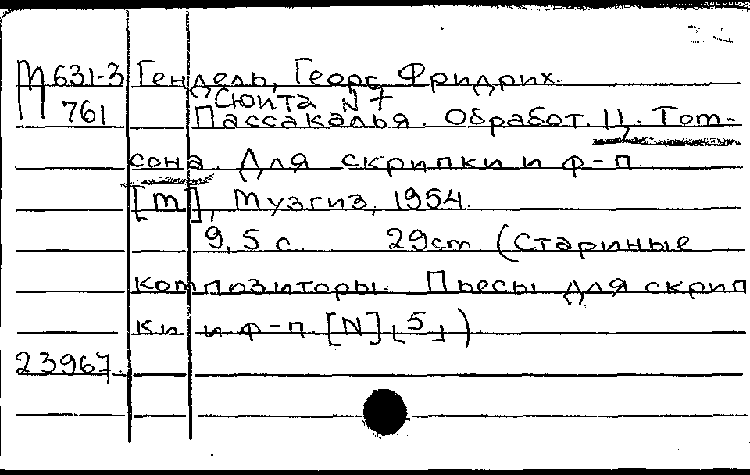 М631-3 Гендель, Георг Фридрих.
Сюита N 7
761 Пассакалья. Обработ. Ц. Том-
сона. Для скрипки и ф-п
[М], Музгиз, 1954.
9,5 с. 29см (Стариные
композиторы. Пьесы для скрип
ки и ф-п. [N] [5])
23967.